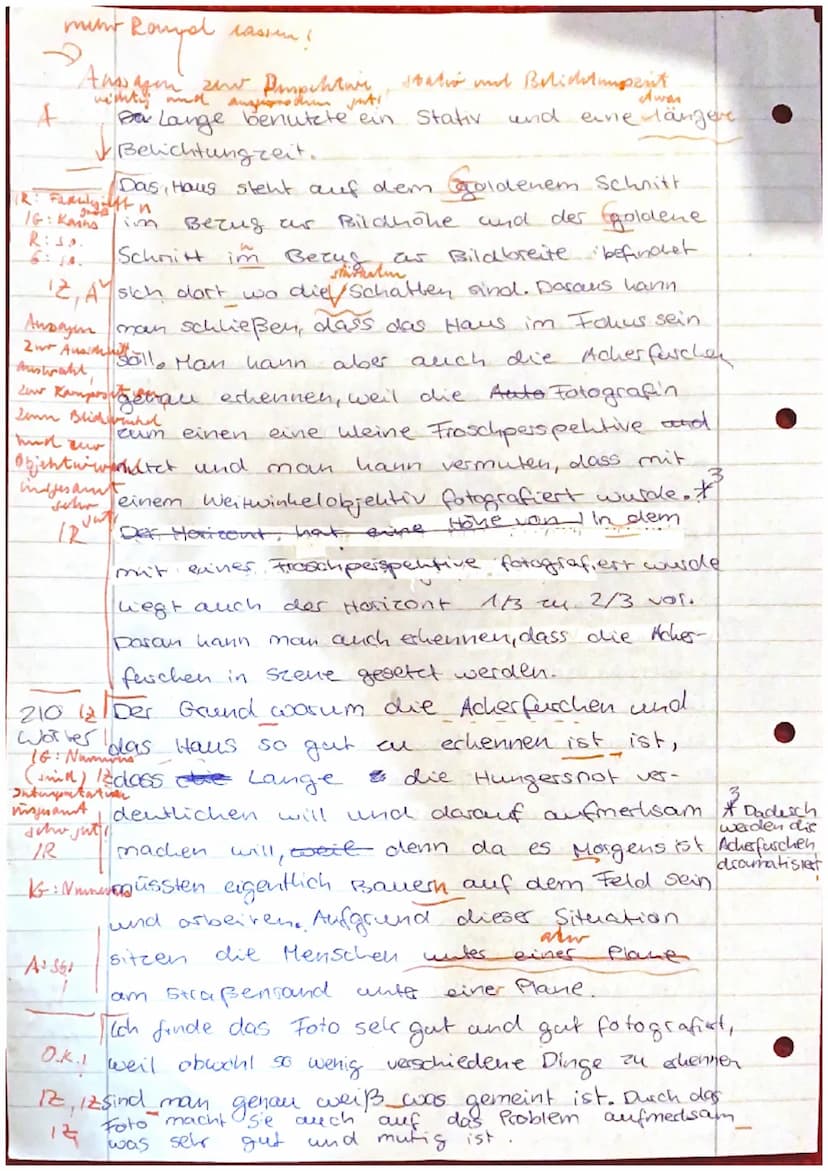 mehr Rand lassen!
Aussagen zur Perspektive, Stativ und Belichtungszeit
richtig und angemessen gut!
etwas
A
Lange benutzte ein Stativ und eine längere
Belichtungzeit.
Das Haus steht auf dem Goldenem Schnitt
im Bezug zur Bildhöhe und der Goldene
Schnitt im Bezug zur Bildbreite befindet
sich dort wo die Schatten sind. Daraus kann
man schließen, dass das Haus im Fokus sein
soll. Man kann aber auch die Ackerfurchen
genau erkennen, weil die Auto Fotografin
zum einen eine kleine Froschperspektive und
nutzt und man kann vermuten, dass mit
einem Weitwinkelobjektiv fotografiert wurde. *3
Der Horizont, hat eine Höhe von In dem
mit einer Froschperspektive fotografiert wurde
liegt auch der Horizont 1/3 zu 2/3 vor.
Daran kann man auch erkennen, dass die Acker-
furchen in Szene gesetzt werden.
Der Grund warum die Ackerfurchen und
das Haus so gut zu erkennen ist ist,
dass die Lange die Hungersnot ver-
deutlichen will und darauf aufmerksam
machen will, weil denn da es Morgens ist
müssten eigentlich Bauern auf dem Feld sein
und arbeiten. Aufgrund dieser Situation
aber
sitzen die Menschen unter einer Plane
am Straßenrand unter einer Plane.
Ich finde das Foto sehr gut und gut fotografiert,
weil obwohl so wenig verschiedene Dinge zu erkennen
sind man genau weiß was gemeint ist. Durch das
Foto macht sie auch auf das Problem aufmerksam
was sehr gut und mutig ist.
*3 Dadurch
werden die
Ackerfurchen
dramatisiert
IG: Kasus
R: s.o.
G: s.o.
IZ, A
Aussagen
zur Ausschnitt
Auswahl,
zur Komposition
zum Blickwinkel
und zur
Objektivwahl
insgesamt
sehr gut!
IR
210
Wörter
IZ
IG: Numerus
(sind) IZ
Interpretation
insgesamt
sehr gut!
IR
IG: Numerus
O.K.!
IZ, IZ
IZ